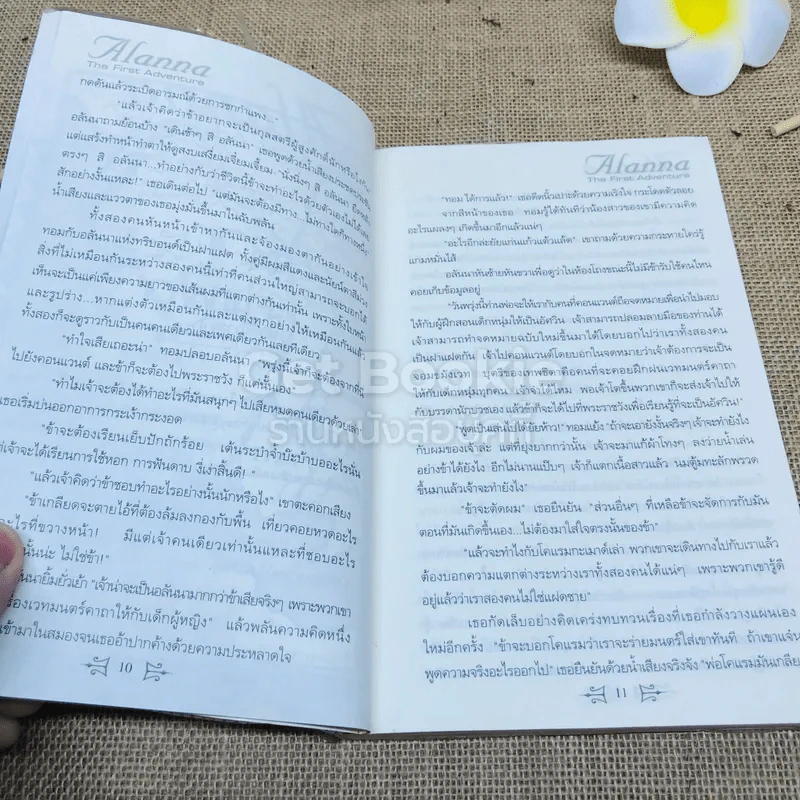 Alanna
The First Adventure
กดดันแล้วระเบิดอารมณ์ด้วยการชกกำแพง..."
"แล้วเจ้าคิดว่าข้าอยากจะเป็นกุลสตรีผู้สูงศักดิ์นักหรือไงกัน"
อลันนาถามย้อนบ้าง "เดินช้าๆ สิ อลันนา" เธอพูดด้วยน้ำเสียงประชดประชัน
แต่แสร้งทำหน้าทำตาให้ดูสงบเสงี่ยมเจี๋ยมเจี้ยม "นั่งนิ่งๆ สิ อลันนา ยืดไหล่
ตรงๆ สิ อลันนา...ทำอย่างกับว่าชีวิตนี้ข้าจะทำอะไรด้วยตัวเองไม่ได้เลย
สักอย่างงั้นแหละ!" เธอเดินต่อไป "แต่มันจะต้องมีทาง...ไม่ทางใดก็ทางหนึ่ง"
น้ำเสียงและแววตาของเธอมุ่งมั่นขึ้นมาในฉับพลัน
ทั้งสองคนหันหน้าเข้าหากันและจ้องมองตากันอย่างเข้าใจ
ทอมกับอลันนาแห่งทริบอนด์เป็นฝาแฝด ทั้งคู่มีผมสีแดงและนัยน์ตาสีม่วง
สิ่งที่ไม่เหมือนกันระหว่างสองคนนี้เท่าที่คนส่วนใหญ่สามารถจะบอกได้
เห็นจะเป็นแค่เพียงความยาวของเส้นผมที่แตกต่างกันเท่านั้น เพราะทั้งใบหน้า
และรูปร่าง...หากแต่งตัวเหมือนกันและแต่งทุกอย่างให้เหมือนกันแล้ว
ทั้งสองก็จะดูราวกับเป็นคนคนเดียวและเพศเดียวกันเลยทีเดียว
"ทำใจเสียเถอะน่า" ทอมปลอบอลันนา "พรุ่งนี้เจ้าก็จะต้องจากที่นี่
ไปยังคอนแวนต์ และข้าก็จะต้องไปพระราชวัง ก็แค่นั้นเอง"
"ทำไมเจ้าจะต้องได้ทำอะไรที่มันสนุกๆ ไปเสียหมดคนเดียวด้วยเล่า"
เธอเริ่มบ่นออกอาการกระเง้ากระงอด
"ข้าจะต้องเรียนเย็บปักถักร้อย เต้นระบำจ้ำบ๊ะบ้าบออะไรนั่น
แต่เจ้าจะได้เรียนการใช้หอก การฟันดาบ งี่เง่าสิ้นดี! "
"แล้วเจ้าคิดว่าข้าชอบทำอะไรอย่างนั้นนักหรือไง" เขาตะคอกเสียง
"ข้าเกลียดจะตายไอ้ที่ต้องล้มลงกองกับพื้น เที่ยวคอยหวดอะไร
อะไรที่ขวางหน้า! มีแต่เจ้าคนเดียวเท่านั้นแหละที่ชอบอะไร
นั้นน่ะ ไม่ใช่ข้า!"
นนายิ้มยั่วเย้า "เจ้าน่าจะเป็นอลันนามากกว่าข้าเสียจริงๆ เพราะพวกเขา
รื่องเวทมนตร์คาถาให้กับเด็กผู้หญิง" แล้วพลันความคิดหนึ่ง
เข้ามาในสมองจนเธออ้าปากค้างด้วยความประหลาดใจ
10
Alanna
The First Adventure
"ทอม ได้การแล้ว!" เธอดีดนิ้วเปาะด้วยความเริงใจ กระโดดตัวลอย
จากสีหน้าของเธอ ทอมรู้ได้ทันทีว่าน้องสาวของเขามีความคิด
อะไรแผลงๆ เกิดขึ้นมาอีกแล้วแน่ๆ
"อะไรอีกล่ะยัยแก่นแก้วแต้วแล้ด" เขาถามด้วยความกระหายใคร่รู้
แกมหมั่นไส้
อลันนาหันซ้ายหันขวาเพื่อดูว่าในห้องโถงขณะนี้ไม่มีข้ารับใช้คนไหน
คอยเก็บข้อมูลอยู่
"วันพรุ่งนี้ท่านพ่อจะให้เรากับคนที่คอนแวนต์ถือจดหมายเพื่อนำไปมอบ
ให้กับผู้ฝึกสอนเด็กหนุ่มให้เป็นอัศวิน เจ้าสามารถปลอมลายมือของท่านได้
เจ้าสามารถทำจดหมายฉบับใหม่ขึ้นมาได้โดยบอกไปว่าเราทั้งสองคน
เป็นฝาแฝดกัน เจ้าไปคอนแวนต์โดยบอกในจดหมายว่าเจ้าต้องการจะเป็น
จอมขมังเวท บุตรีของเทพธิดาคือคนที่จะคอยฝึกฝนเวทมนตร์คาถา
ให้กับเด็กหนุ่มทุกคน เจ้าจำได้ไหม พอเจ้าโตขึ้นพวกเขาก็จะส่งเจ้าไปให้
กับบรรดานักบวชเอง แล้วข้าก็จะได้ไปที่พระราชวังเพื่อเรียนรู้ที่จะเป็นอัศวินไง"
"พูดเป็นเล่นไปได้ยัยห้าว!" ทอมแย้ง "ถ้าจะเอายังงั้นจริงๆ เจ้าจะทำยังไง
กับผมของเจ้าล่ะ แต่ที่ยุ่งยากกว่านั้น เจ้าจะมาแก้ผ้าโทงๆ ลงว่ายน้ำเล่น
อย่างข้าได้ยังไง อีกไม่นานแป๊บๆ เจ้าก็แตกเนื้อสาวแล้ว นมตู้มทะลักพรวด
ขึ้นมาแล้วเจ้าจะทำยังไง"
"ข้าจะตัดผม" เธอยืนยัน "ส่วนอื่นๆ ที่เหลือข้าจะจัดการกับมัน
ตอนที่มันเกิดขึ้นเอง...ไม่ต้องมาใส่ใจตรงนั้นของข้า"
"แล้วจะทำไงกับโคแรมกะเมาด์เล่า พวกเขาจะเดินทางไปกับเราแล้ว
ต้องบอกความแตกต่างระหว่างเราทั้งสองคนได้แน่ๆ เพราะพวกเขารู้ดี
อยู่แล้วว่าเราสองคนไม่ใช่แฝดชาย"
เธอกัดเล็บอย่างคิดเคร่งทบทวนเรื่องที่เธอกำลังวางแผนเอง
ใหม่อีกครั้ง "ข้าจะบอกโคแรมว่าเราจะร่ายมนตร์ใส่เขาทันที ถ้าเขาแจ้น
พูดความจริงอะไรออกไป" เธอยืนยันด้วยน้ำเสียงจริงจัง "พ่อโคแรมมันเกลีย
11
Get Bookie
ร้านหนังสือเก่า